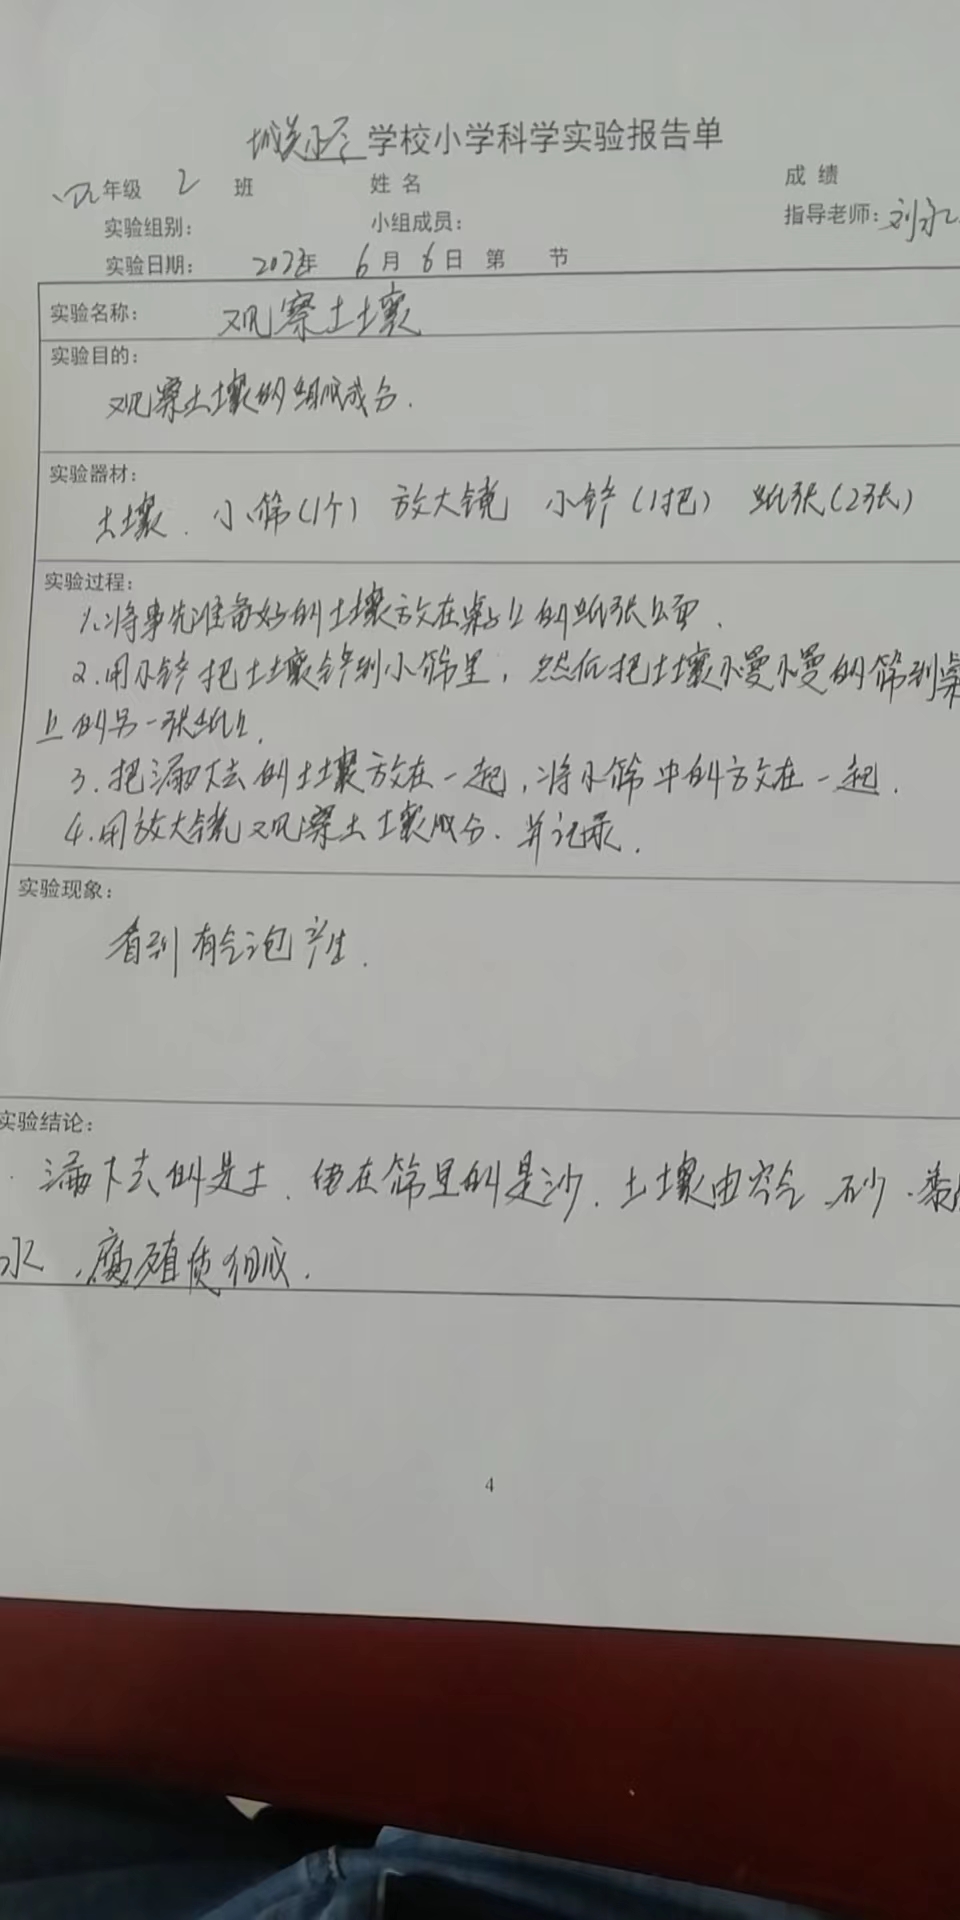 城关小学学校小学科学实验报告单
四年级 2 班 姓名 成绩
实验组别: 小组成员: 指导老师:刘永
实验日期: 2023年 6月6日 第 节
实验名称: 观察土壤
实验目的:
观察土壤的组成成分.
实验器材:
土壤. 小筛(1个) 放大镜 小铲(1把) 纸张(2张)
实验过程:
1.将事先准备好的土壤放在桌上的纸张上面.
2.用小铲把土壤铲到小筛里,然后把土壤慢慢的筛到桌
上的另一张纸上.
3.把漏下去的土壤放在一起,将小筛中的放在一起.
4.用放大镜观察土壤成分.并记录.
实验现象:
看到有气泡产生.
实验结论:
漏下去的是土.留在筛里的是沙.土壤由空气 砂.
水.腐殖质组成.
4